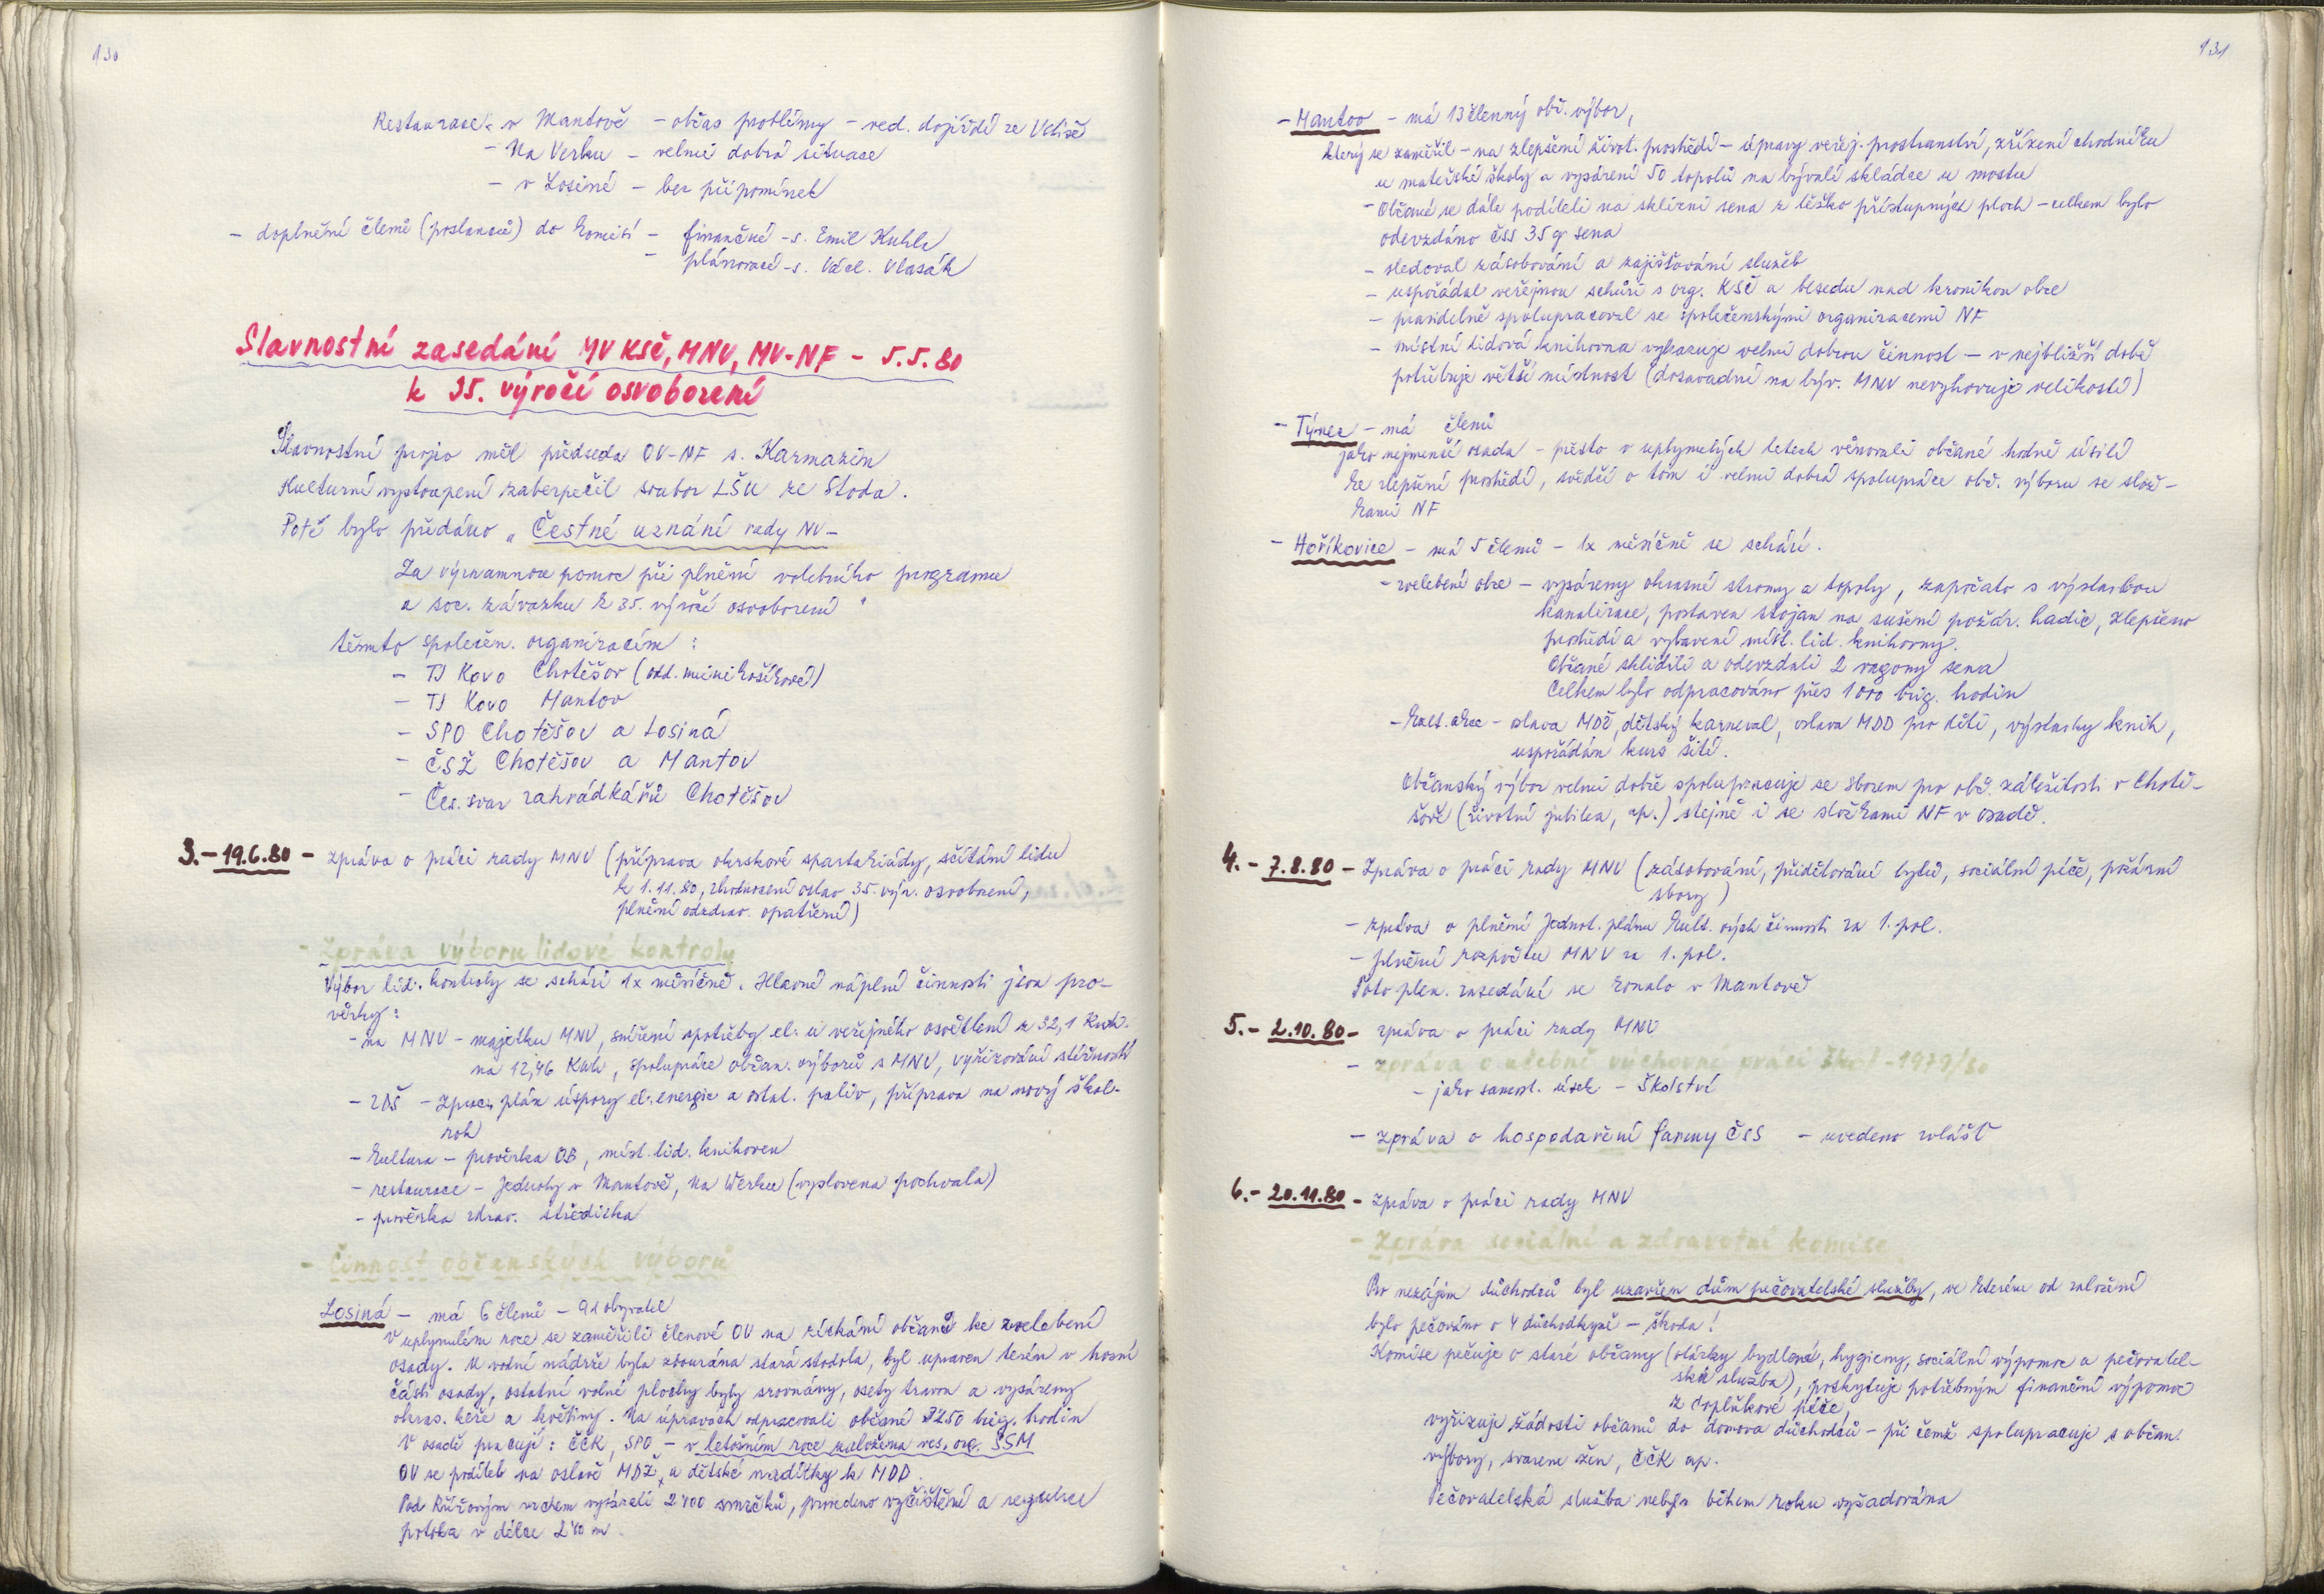 130
Restaurace: v Mantově – občas problémy – ved. dojíždí ze Vstiše
– Na Verku – velmi dobrá situace
– v Losiné – bez připomínek
– doplnění členů (poslanců) do komisí – finanční – s. Emil Kuhle
– plánovací – s. Václ. Vlasák
Slavnostní zasedání MV KSČ, MNV, MV-NF – 5.5.80
k 35. výročí osvobození
Slavnostní projev měl předseda OV-NF s. Karmazín
Kulturní vystoupení zabezpečil soubor LŠU ze Stoda.
Poté bylo předáno „Čestné uznání rady NV –
Za významnou pomoc při plnění volebního programu
a soc. závazku k 35. výročí osvobození"
těmto společen. organizacím:
– TJ Kovo Chotěšov (odd. minikošíkové)
– TJ Kovo Mantov
– SPO Chotěšov a Losiná
– ČSŽ Chotěšov a Mantov
– Čes. svaz zahrádkářů Chotěšov
3. – 19.6.80 – zpráva o práci rady MNV (příprava okrskové spartakiády, sčítání lidu
k 1.11.80, zhodnocení oslav 35. výr. osvobození,
plnění ozdrav. opatření)
– Zpráva výboru lidové kontroly
Výbor lid. kontroly se schází 1x měsíčně. Hlavní náplní činnosti jsou pro-
věrky:
– na MNV – majetku MNV, snížení spotřeby el. u veřejného osvětlení z 32,1 Kwh.
na 12,46 Kwh, spolupráce občan. výborů s MNV, vyřizování stížností
– ZDŠ – zprac. plán úspory el. energie a ostat. paliv, příprava na nový škol.
rok
– kultura – prověrka OB, míst. lid. knihoven
– restaurace – Jednoty v Mantově, Na Werku (vyslovena pochvala)
– prověrka zdrav. střediska
– Činnost občanských výborů
Losiná – má 6 členů – obyvatel
V uplynulém roce se zaměřili členové OV na získání občanů ke zvelebení
osady. U vodní nádrže byla zbourána stará stodola, byl upraven terén v horní
části osady, ostatní volné plochy byly srovnány, osety travou a vysázeny
okras. keře a květiny. Na úpravách odpracovali občané 3250 brig. hodin
V osadě pracují: ČČK, SPO – v letošním roce založena ves. org. SSM
OV se podílel na oslavě MDŽ, a dětské nadílky k MDD.
Pod Křížovým vrchem vysázeli 2400 smrčků, provedeno vyčištění a regulace
potoka v délce 240 m.
131
– Mantov – má 13 členný obč. výbor,
který se zaměřil – na zlepšení život. prostředí – úpravy veřej. prostranství, zřízení chodníku
u mateřské školy a vysázení 50 topolů na bývalé skládce u mostu
– Občané se dále podíleli na sklizni sena z těžko přístupných ploch – celkem bylo
odevzdáno čss 35 q sena
– sledoval zásobování a zajišťování služeb
– uspořádal veřejnou schůzi s org. KSČ a besedu nad kronikou obce
– pravidelně spolupracoval se společenskými organizacemi NF
– místní lidová knihovna vykazuje velmi dobrou činnost – v nejbližší době
potřebuje větší místnost (dosavadní na býv. MNV nevyhovuje velikostí)
– Týnec – má členů
jako nejmenší osada – přesto v uplynulých letech věnovali občané hodně úsilí
ke zlepšení prostředí, svědčí o tom i velmi dobrá spolupráce obč. výboru se slož-
kami NF
– Hoříkovice – má 5 členů – 1x měsíčně se schází.
– zvelebení obce – vysázeny okrasné stromy a topoly, započato s výstavbou
kanalizace, postaven stojan na sušení požár. hadic, zlepšeno
prostředí a vybavení míst. lid. knihovny.
Občané sklidili a odevzdali 2 vagony sena
Celkem bylo odpracováno přes 1000 brig. hodin
– kult. akce – oslava MDŽ, dětský karneval, oslava MDD pro děti, výstavky knih,
uspořádán kurs šití.
Občanský výbor velmi dobře spolupracuje se sborem pro obč. záležitosti v Chotě-
šově (životní jubilea, ap.) stejně i se složkami NF v osadě.
4. – 7.8.80 – Zpráva o práci rady MNV (zásobování, přidělování bytů, sociální péče, požární
sbory)
– zpráva o plnění Jednot. plánu kult. vých činnosti za 1. pol.
– plnění rozpočtu MNV za 1. pol.
Toto plen. zasedání se konalo v Mantově
5. – 2.10.80 – zpráva o práci rady MNV
– zpráva o učebně výchovné práci škol – 1979/80
– jako samost. úsek – Školství
– zpráva o hospodaření farmy ČSS – uvedeno zvlášť
6. – 20.11.80 – Zpráva o práci rady MNV
– Zpráva sociální a zdravotní komise
Pro nezájem důchodců byl uzavřen dům pečovatelské služby, ve kterém od založení
bylo pečováno o 4 důchodkyně – škoda!
Komise pečuje o staré občany (otázky bydlení, hygieny, sociální výpomoc a pečovatel-
ská služba), poskytuje potřebným finanční výpomoc
z doplňkové péče,
vyřizuje žádosti občanů do domova důchodců – při čemž spolupracuje s občan.
výbory, svazem žen, ČČK ap.
Pečovatelská služba nebyla během roku vyžadována